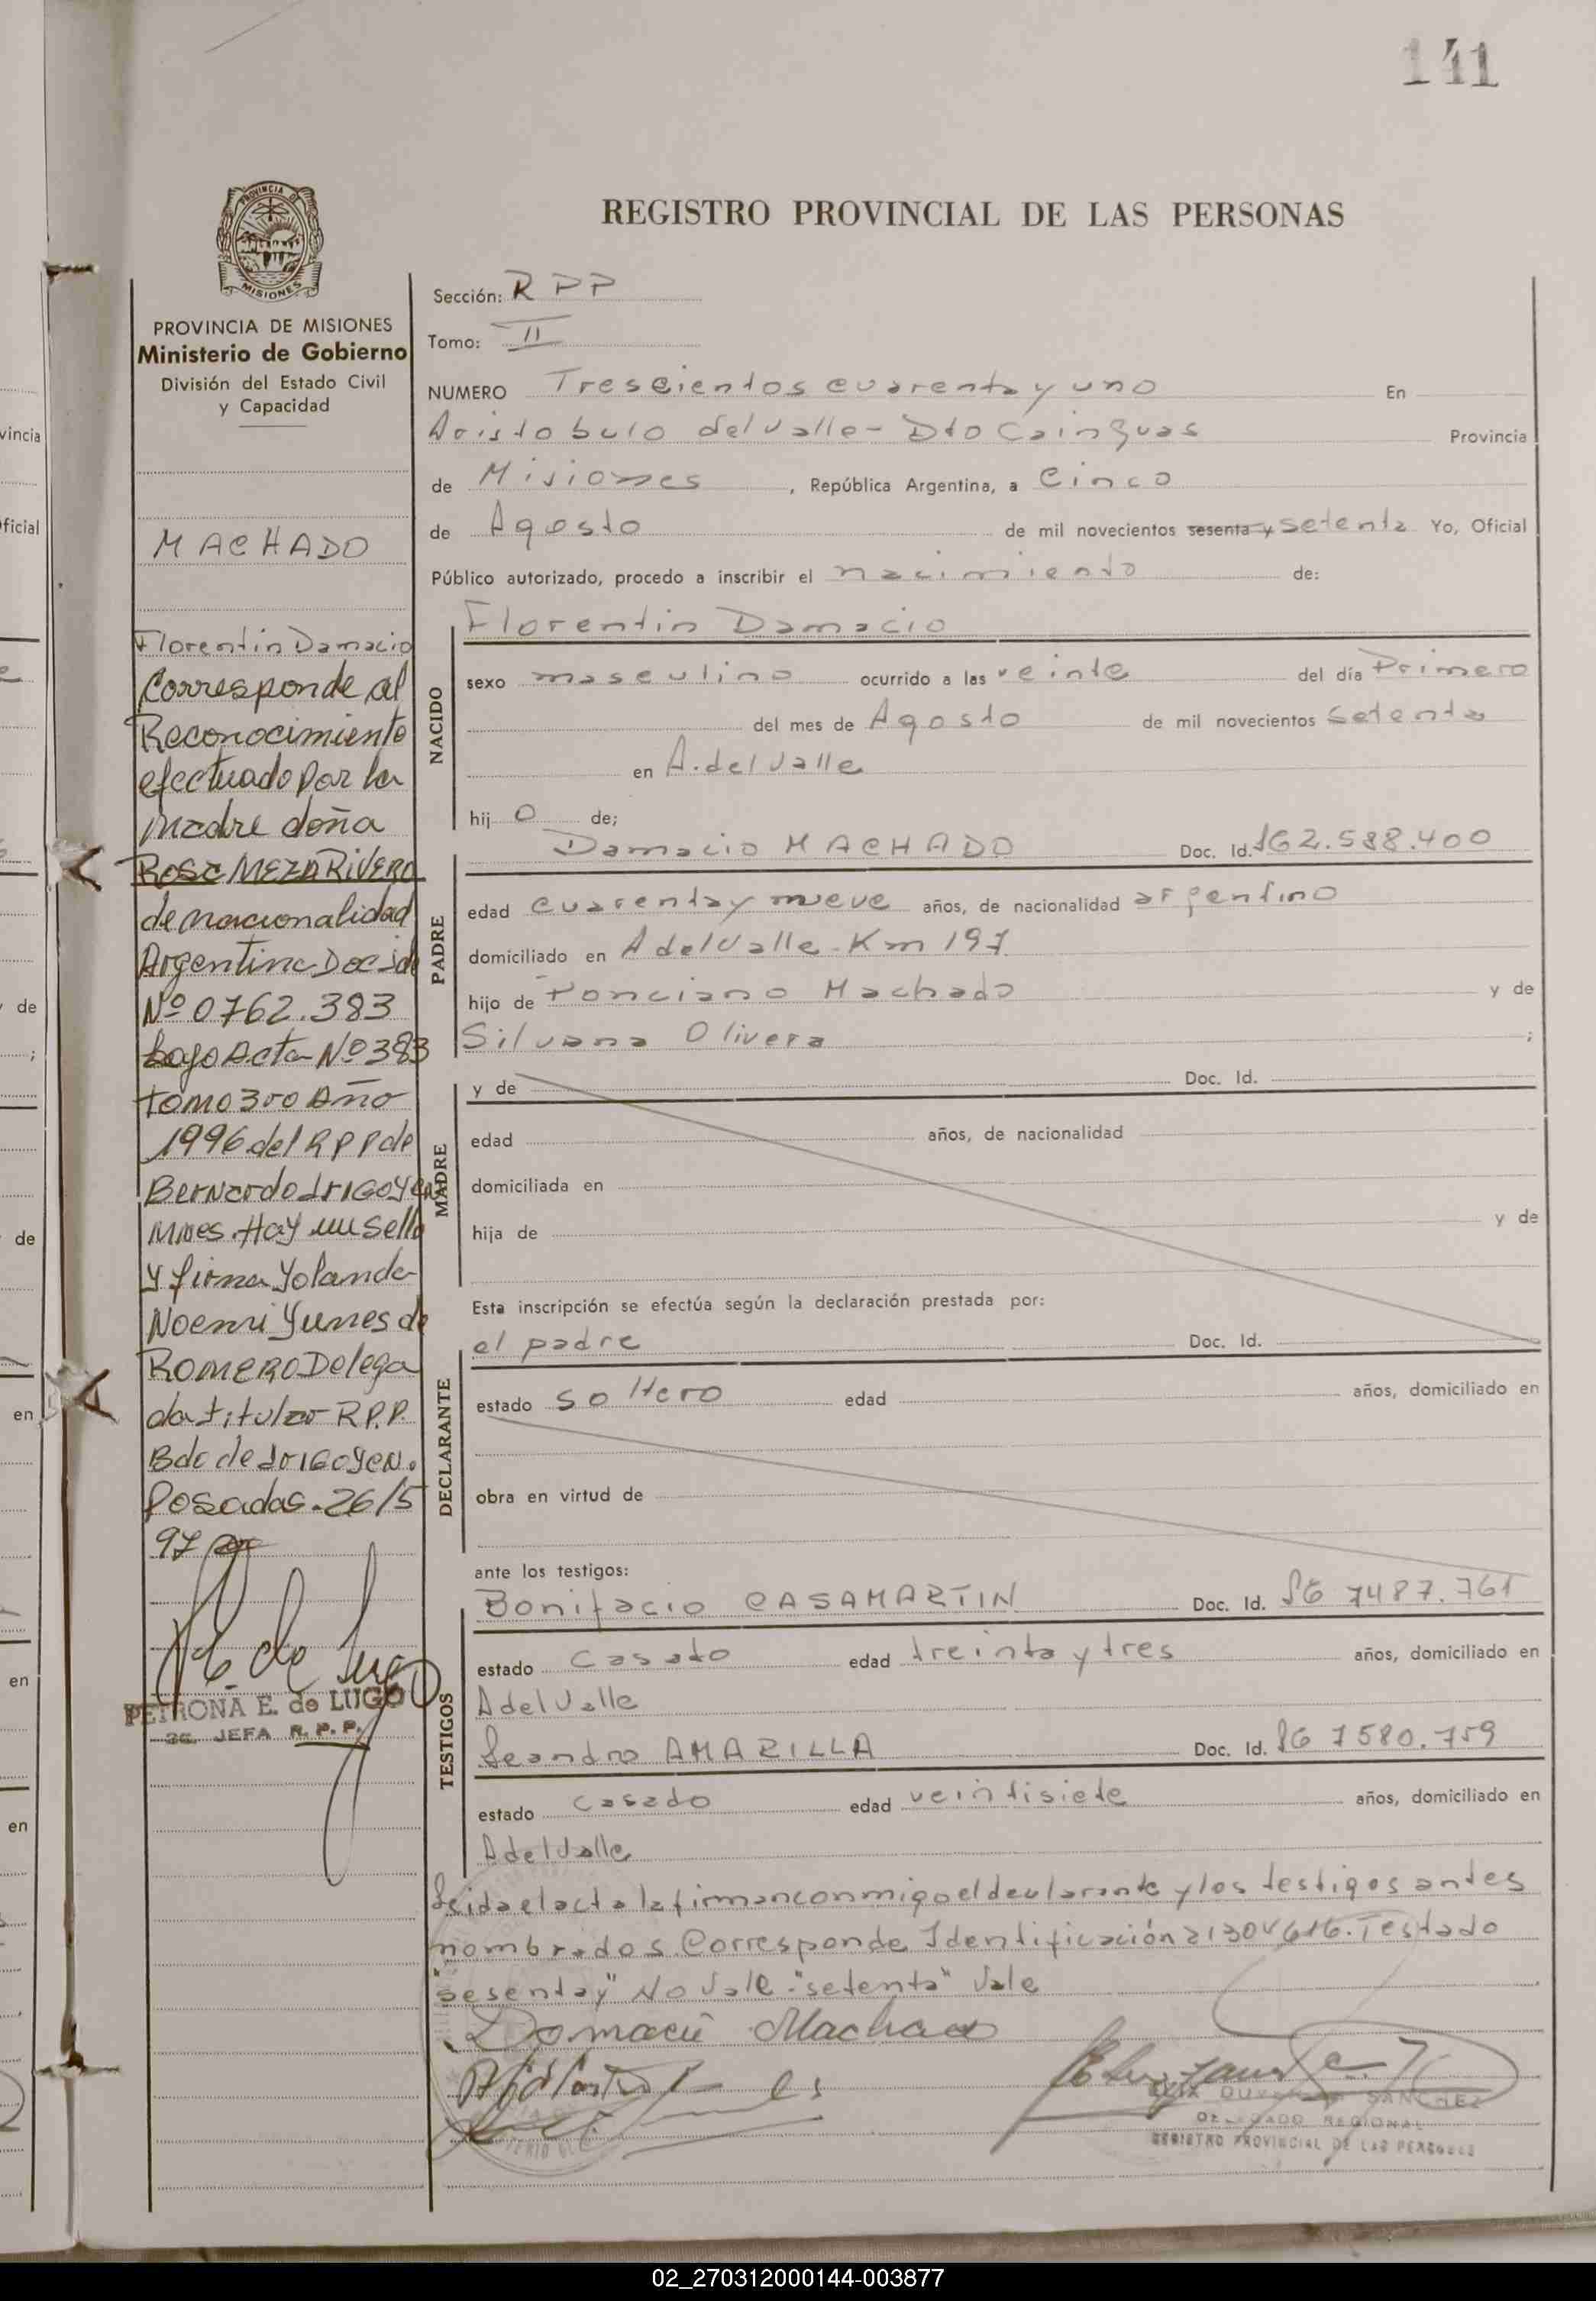 141
REGISTRO PROVINCIAL DE LAS PERSONAS
PROVINCIA DE
MISIONES
PROVINCIA DE MISIONES
Ministerio de Gobierno
División del Estado Civil
y Capacidad
MACHADO
Florentin Damacio
Corresponde al
Reconocimiento
efectuado por la
madre doña
ROSA MEZA RIVERO
de nacionalidad
Argentina Doc id
Nº 0762.383
bajo Acta Nº 383
tomo 3ro Año
1996 del RPP de
Bernardo Irigoyen
Mnes. Hay un Sello
y firma Yolanda
Noemi Yunes de
ROMERO Delega
da titular R.P.P.
Bdo de Irigoyen.
Posadas. 26/5
97
PETRONA E. de LUGO
JEFA R. P. P.
Sección: RPP
Tomo: II
NUMERO Trescientos cuarenta y uno En
Aristobulo del Valle - Dto Cainguas Provincia
de Misiones, República Argentina, a Cinco
de Agosto de mil novecientos sesenta y setenta Yo, Oficial
Público autorizado, procedo a inscribir el nacimiento de:
NACIDO
Florentin Damacio
sexo masculino ocurrido a las veinte del día Primero
del mes de Agosto de mil novecientos setenta
en A. del Valle
hijo de;
PADRE
Damacio MACHADO Doc. Id. 162.588.400
edad cuarenta y nueve años, de nacionalidad argentino
domiciliado en A del Valle Km 197
hijo de Ponciano Machado y de
Silvana Olivera ;
MADRE
y de Doc. Id.
edad años, de nacionalidad
domiciliada en
hija de y de
Esta inscripción se efectúa según la declaración prestada por:
DECLARANTE
el padre Doc. Id.
estado soltero edad años, domiciliado en
obra en virtud de
ante los testigos:
TESTIGOS
Bonifacio CASAMARTIN Doc. Id. 7487.761
estado casado edad treinta y tres años, domiciliado en
A del Valle
Leandro AMARILLA Doc. Id. 7580.759
estado casado edad veintisiete años, domiciliado en
A del Valle
Leida el acta la firman conmigo el declarante y los testigos antes
nombrados. Corresponde Identificación Testado
"sesenta y" No Vale. "setenta" Vale
Damacio Machado
SANCHEZ
DELEGADO REGIONAL
REGISTRO PROVINCIAL DE LAS PERSONAS
vincia
ficial
de
;
de
en
en
en
02_270312000144-003877